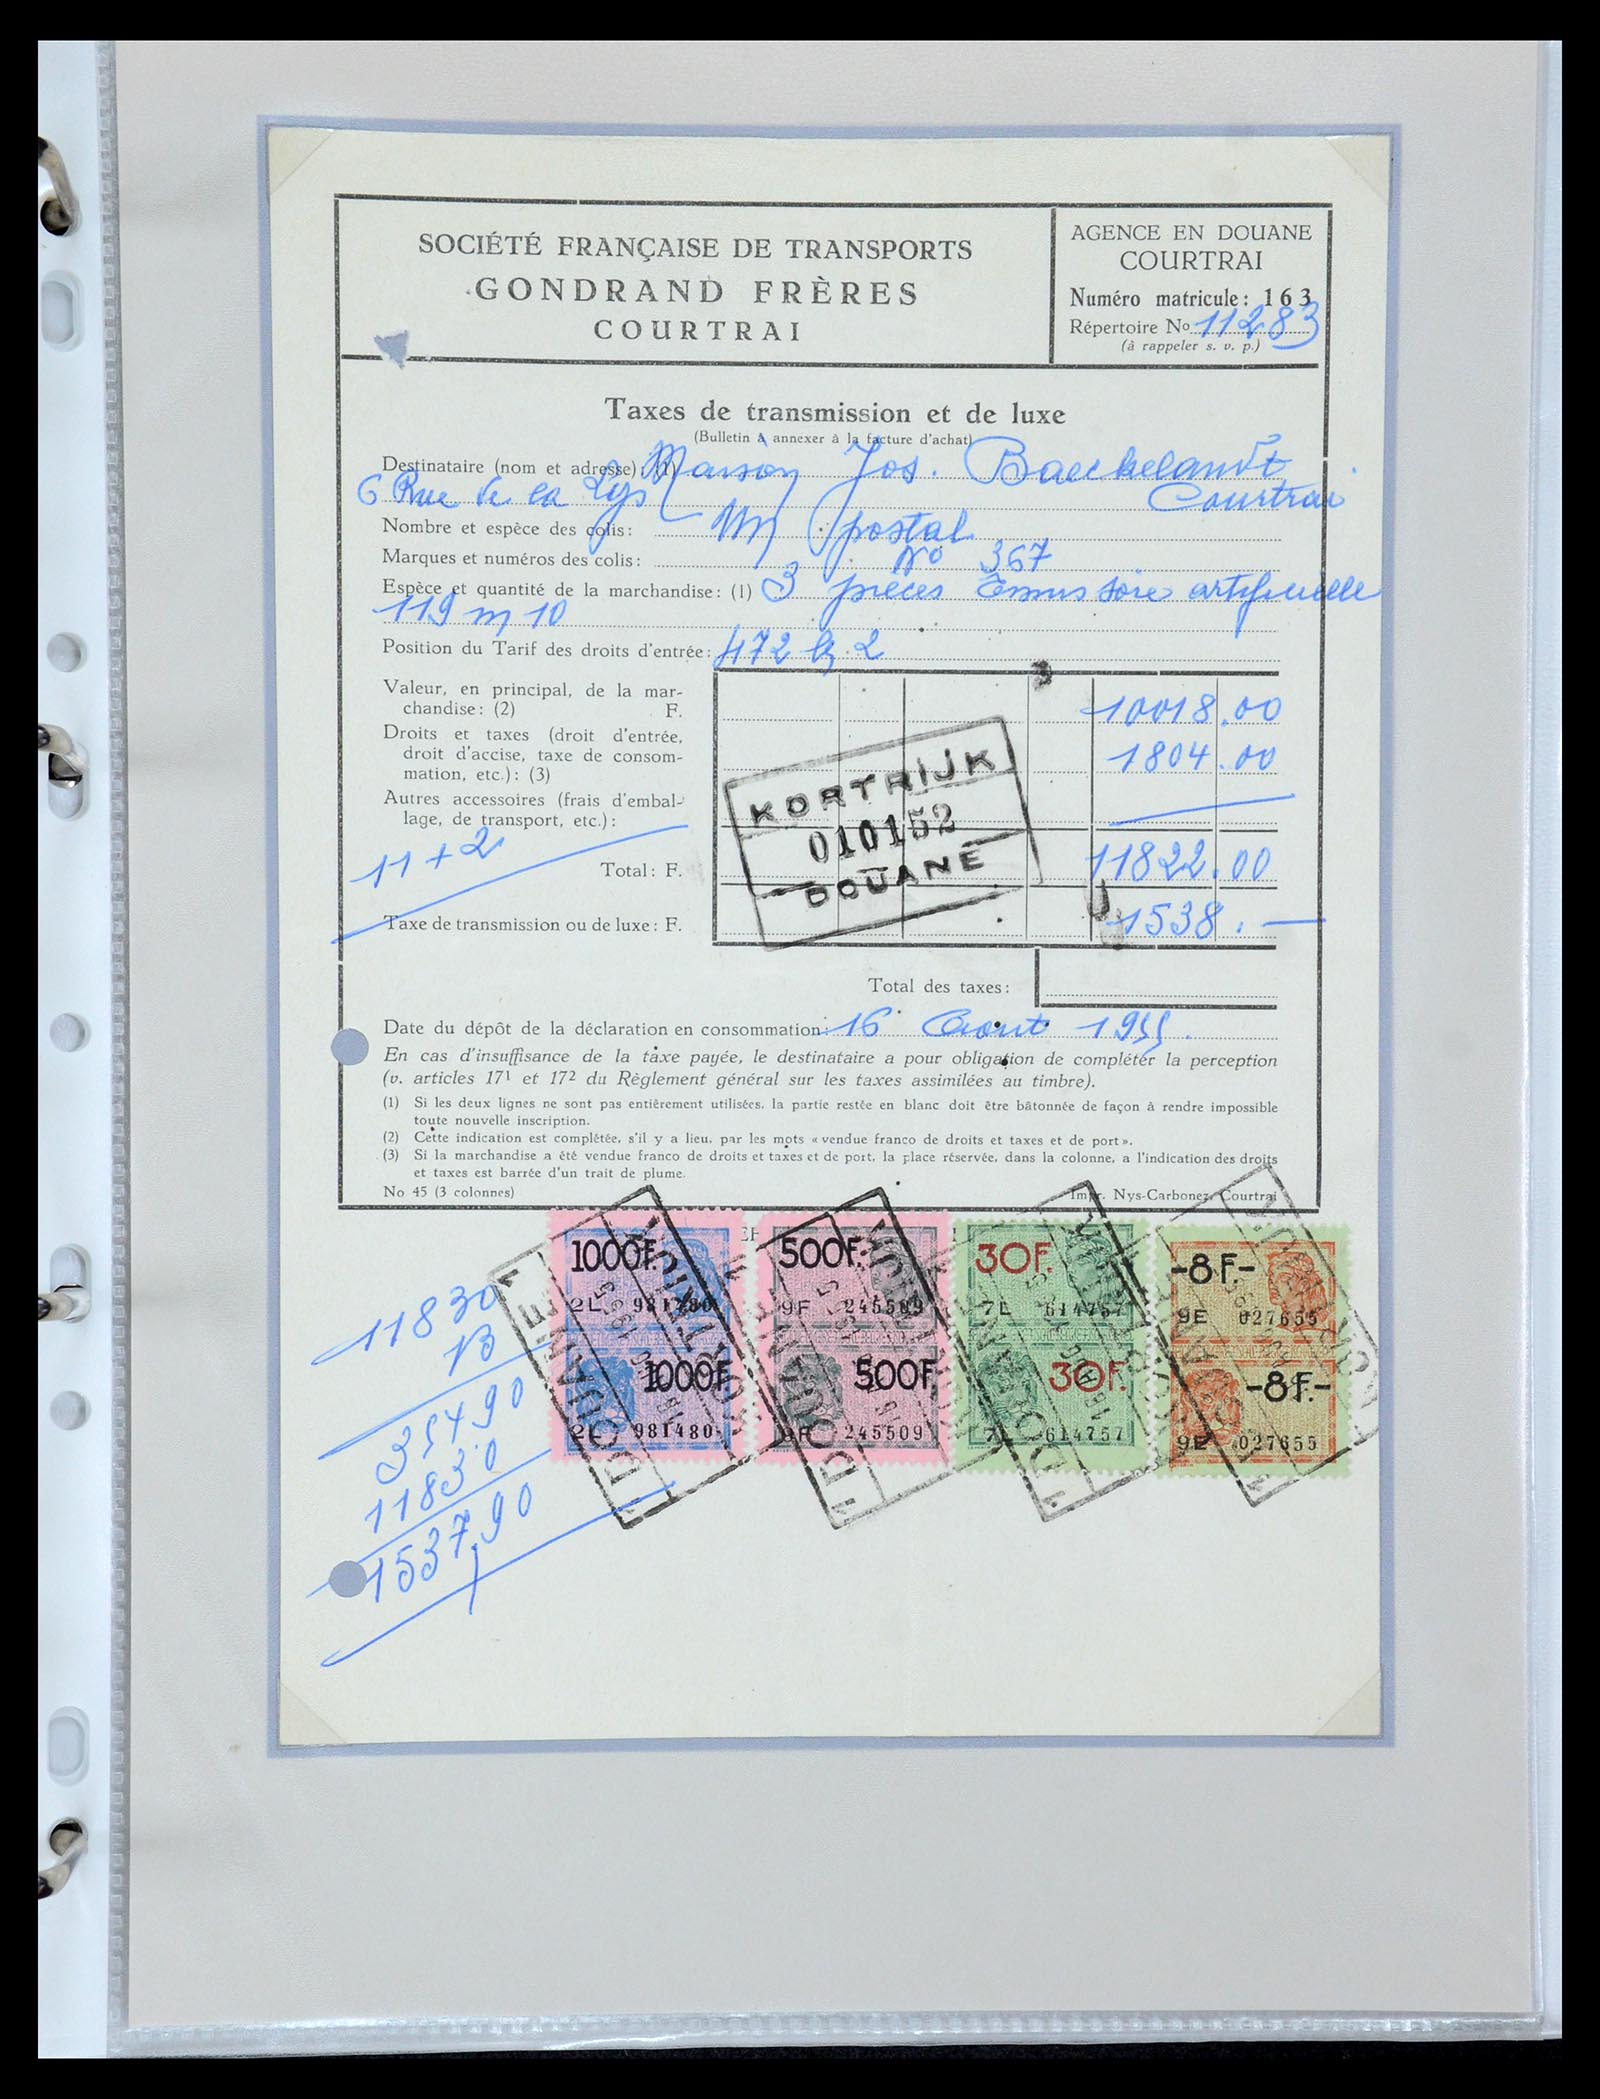 SOCIÉTÉ FRANÇAISE DE TRANSPORTS
GONDRAND FRÈRES
COURTRAI
AGENCE EN DOUANE
COURTRAI
Numéro matricule: 163
Répertoire No 11283
(à rappeler s. v. p.)
Taxes de transmission et de luxe
(Bulletin à annexer à la facture d'achat)
Destinataire (nom et adresse): (1) Maison Jos. Baeckelandt
6 Rue de la Lys Courtrai
Nombre et espèce des colis: Un postal
Marques et numéros des colis: No 367
Espèce et quantité de la marchandise: (1) 3 pièces soie artificielle
119 m 10
Position du Tarif des droits d'entrée: 472 b 2
Valeur, en principal, de la mar-
chandise: (2) F. 10018.00
Droits et taxes (droit d'entrée,
droit d'accise, taxe de consom-
mation, etc.): (3) 1804.00
Autres accessoires (frais d'embal-
lage, de transport, etc.):
11 + 2
Total: F. 11822.00
Taxe de transmission ou de luxe: F. 1538.—
KORTRIJK
010152
DOUANE
Total des taxes:
Date du dépôt de la déclaration en consommation: 16 Aout 1955.
En cas d'insuffisance de la taxe payée, le destinataire a pour obligation de compléter la perception
(v. articles 171 et 172 du Règlement général sur les taxes assimilées au timbre).
(1) Si les deux lignes ne sont pas entièrement utilisées, la partie restée en blanc doit être bâtonnée de façon à rendre impossible
toute nouvelle inscription.
(2) Cette indication est complétée, s'il y a lieu, par les mots « vendue franco de droits et taxes et de port ».
(3) Si la marchandise a été vendue franco de droits et taxes et de port, la place réservée, dans la colonne, a l'indication des droits
et taxes est barrée d'un trait de plume.
No 45 (3 colonnes)
Impr. Nys-Carbonez, Courtrai
1000F. 500F. 30F. -8F.-
2L 981480 9F 245509 7L 614757 9E 027655
1000F. 500F. 30F. -8F.-
2L 981480 9F 245509 7L 614757 9E 027655
11830
13
35490
11830
153790